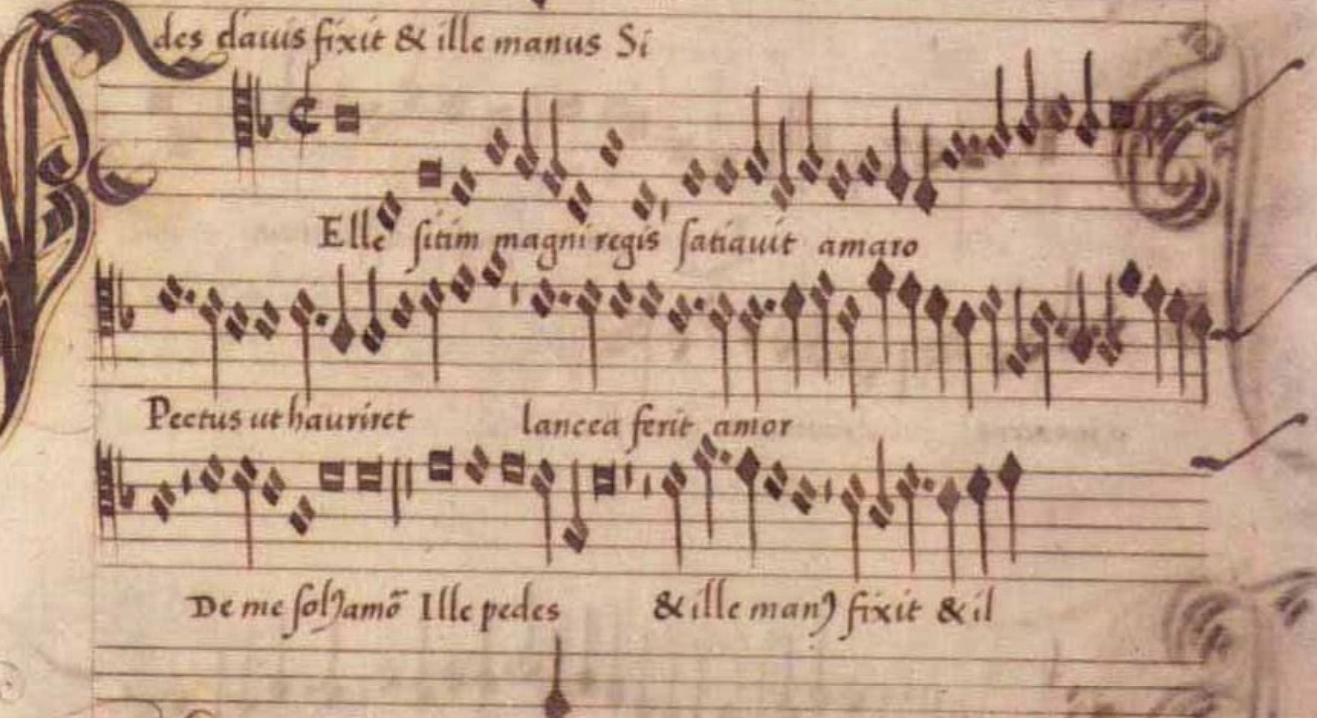 des clauis fixit & ille manus Si
FElle sitim magni regis satiauit amaro
Pectus ut hauriret lancea ferit amor
De me solꝰ amõ Ille pedes & ille manꝰ fixit & il